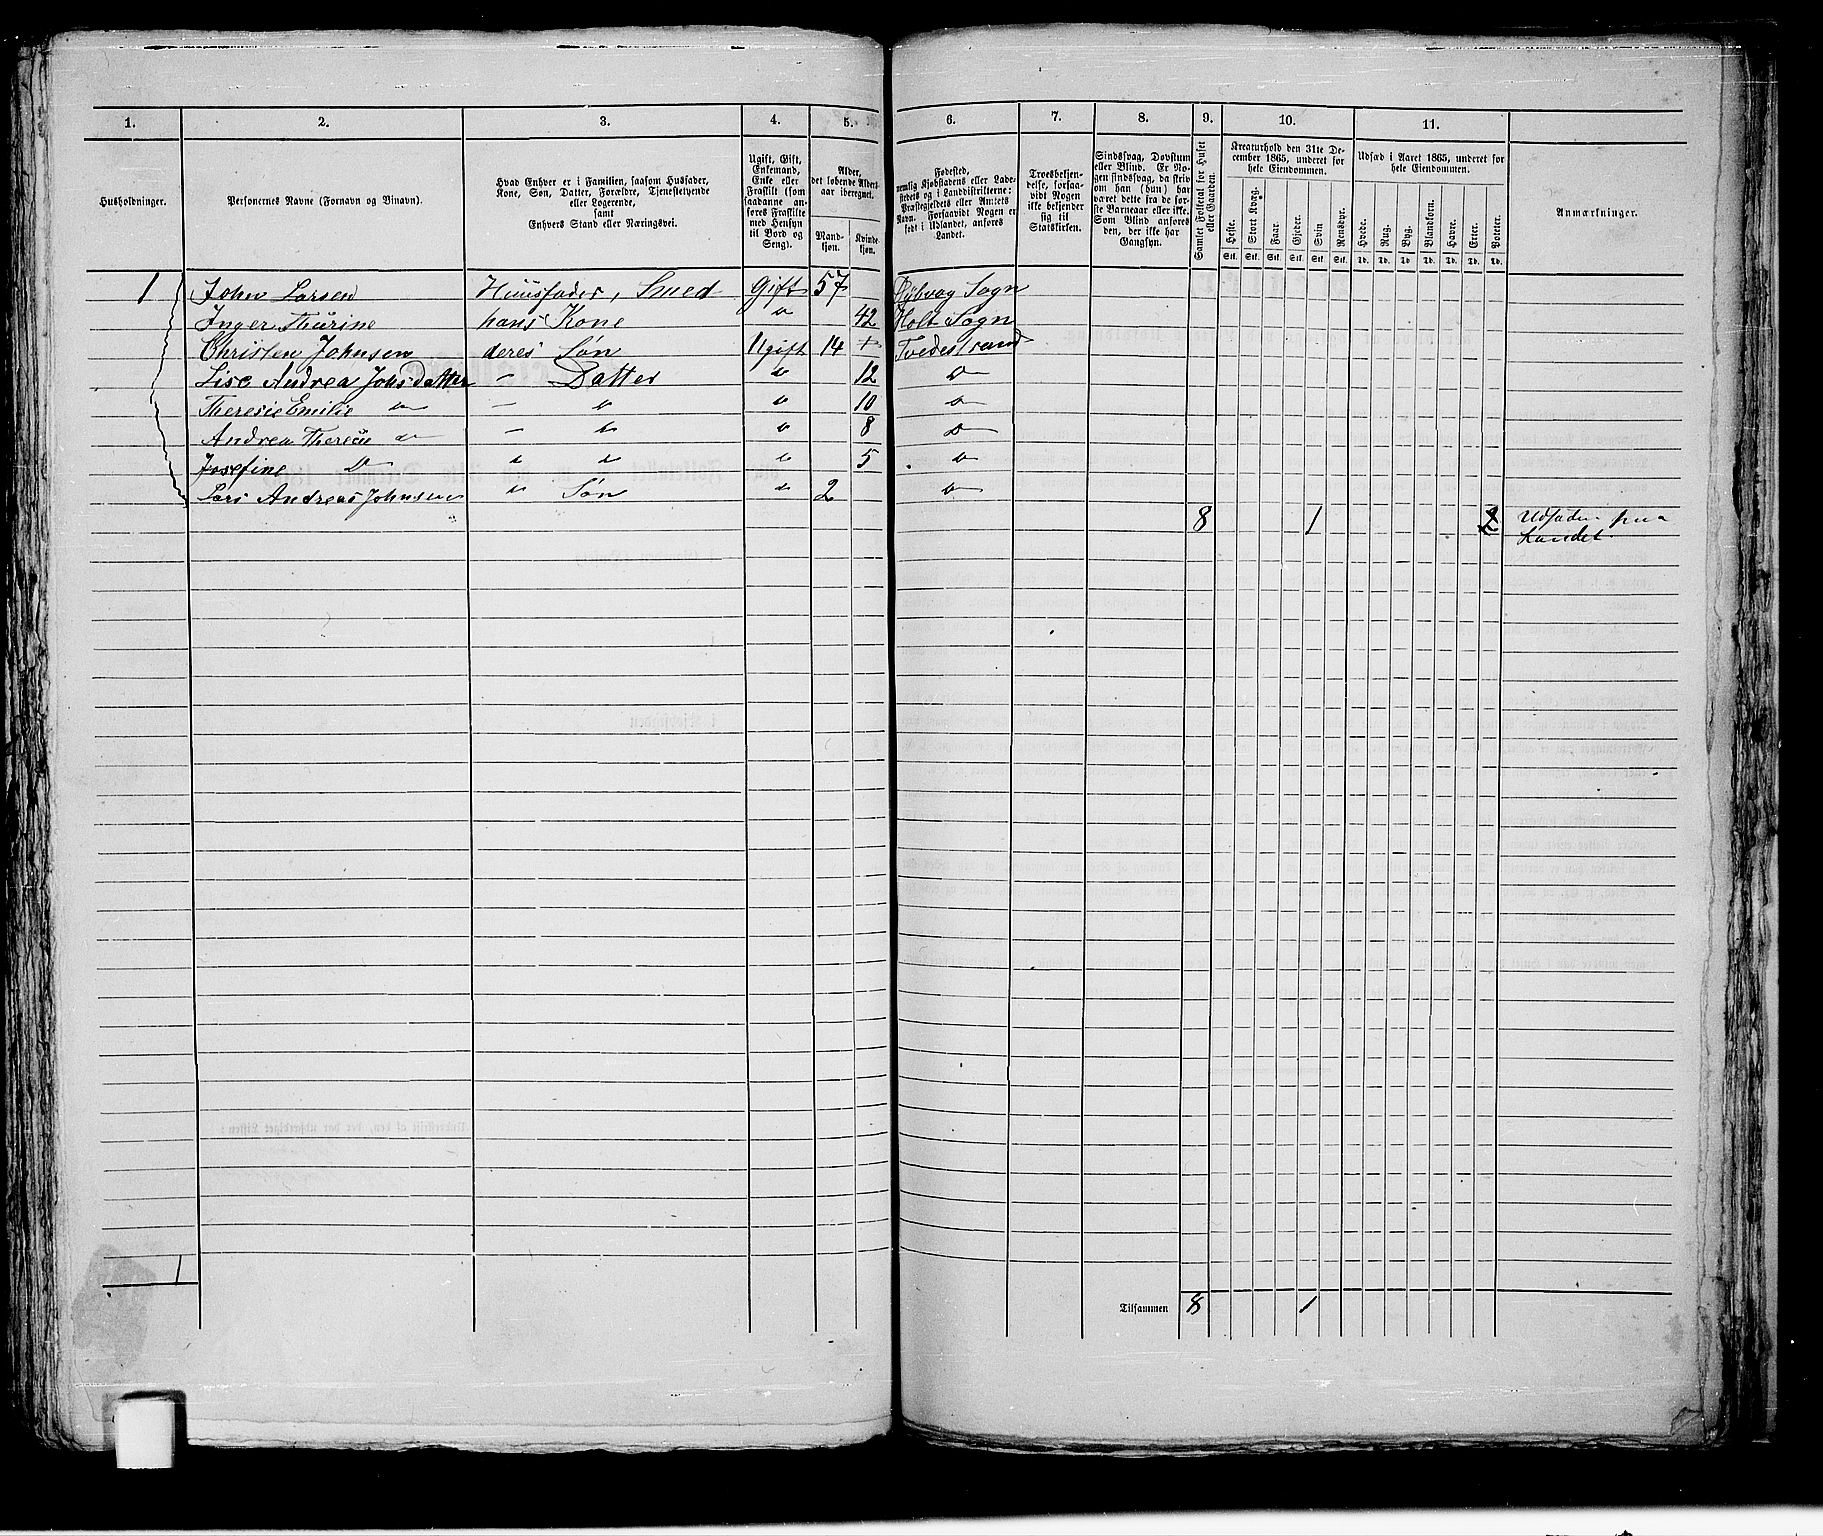 1. 2. 3. 4. 5. 6. 7. 8. 9. 10. 11.
Husholdninger.
Personernes Navne (Fornavn og Binavn).
Hvad Enhver er i Familien, saasom Husfader,
Kone, Søn, Datter, Forældre, Tjenestetyende
eller Logerende,
samt
Enhvers Stand eller Næringsvei.
Ugift, Gift,
Enkemand,
Enke eller
Fraskilt (som
saadanne an-
føres Fraskilte
med Hensyn
til Bord og
Seng).
Alder,
det løbende Alders-
aar iberegnet.
Mand-
kjøn.
Kvinde-
kjøn.
Fødested,
nemlig Kjøbstadens eller Lade-
stedets og i Landdistrikterne:
Præstegjeldets eller Amtets
Navn. Forsaavidt Nogen er
født i Udlandet, anføres
Landet.
Troesbekjen-
delse, forsaa-
vidt Nogen
ikke bekjender
sig til
Statskirken.
Sindssvag, Døvstum
eller Blind. Er No-
gen sindssvag, da skriv
om han (hun) har
været dette fra de før-
ste Barneaar eller ikke.
Som Blind anføres
den, der ikke har
Gangsyn.
Samlet Folketal for Huset
eller Gaarden.
Kreaturhold den 31te De-
cember 1865, underet for
hele Eiendommen.
Heste. Stort Kvæg. Faar. Gjeder. Svin Rensdyr.
Stk. Stk. Stk. Stk. Stk. Stk.
Udsæd i Aaret 1865, underet for
hele Eiendommen.
Hvede. Rug. Byg. Blandkorn. Havre. Erter. Poteter.
Td. Td. Td. Td. Td. Td. Td.
Anmærkninger.
1 John Larsen Huusfader, Smed Gift 57 Dybvag Sogn
Inger Thurine hans Kone " 42 Holt Sogn
Christen Johnsen deres Søn Ugift 14 + Tvedestrand
Lise Andrea Johsdatter — Datter " 12 D
Theresie Emilie " — " " 10 "
Andrea Therese " — " " 8 D
Josefine D " " " 5 "
Lars Andreas Johnsen " Søn " 2 "
8 1 2 Udsæden paa
Landet.
1
Tilsammen 8 1